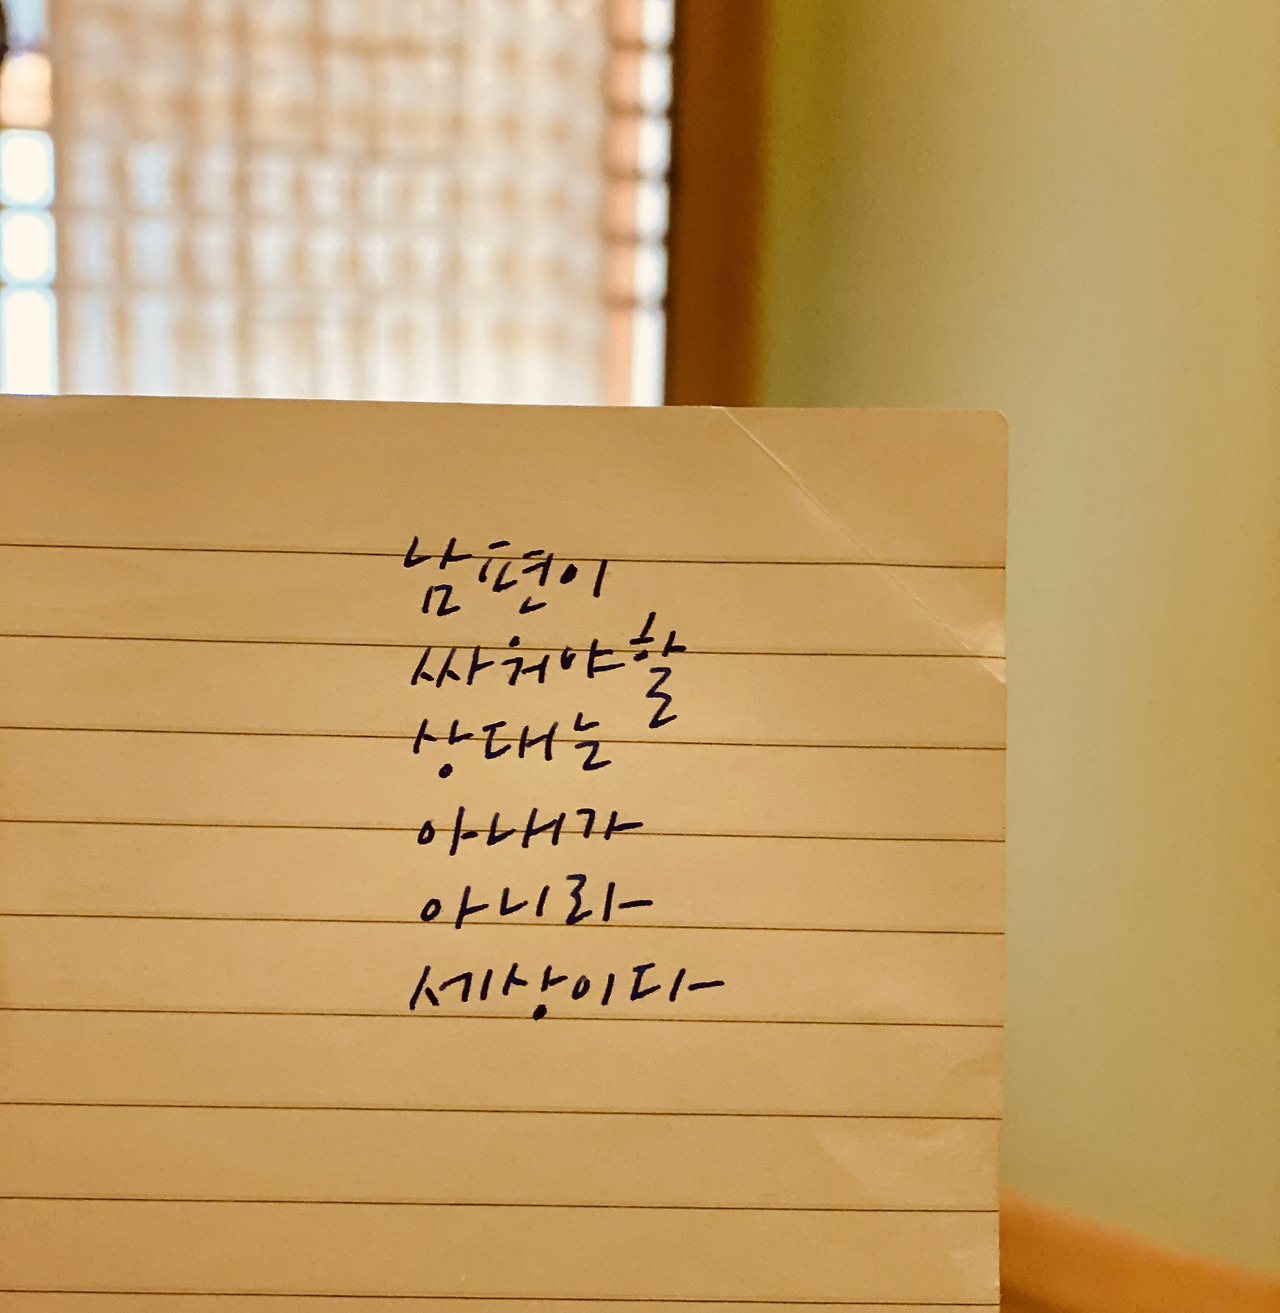 남편이
싸워야할
상대는
아내가
아니라
세상이다